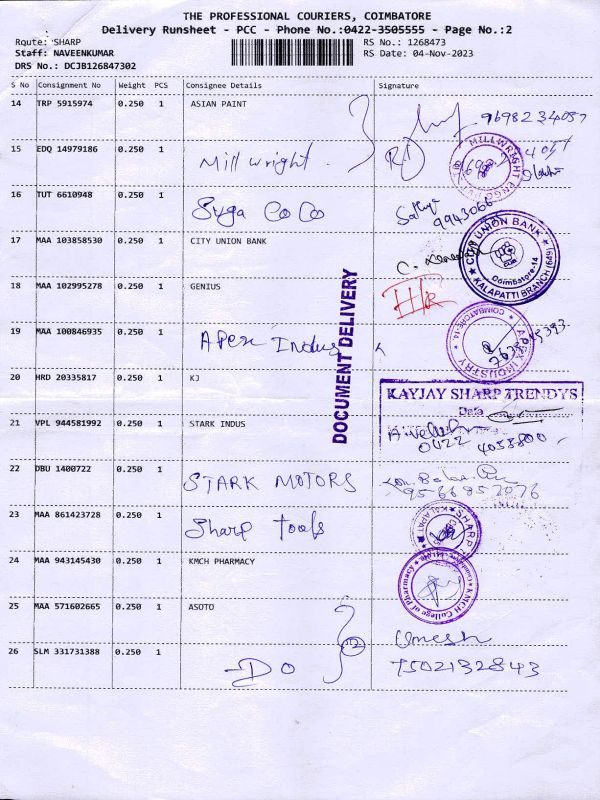 THE PROFESSIONAL COURIERS, COIMBATORE
Delivery Runsheet - PCC - Phone No.:0422-3505555 - Page No.:2
Route: SHARP RS No.: 1268473
Staff: NAVEENKUMAR RS Date: 04-Nov-2023
DRS No.: DCJB126847302
S No Consignment No Weight PCS Consignee Details Signature
14 TRP 5915974 0.250 1 ASIAN PAINT 9698234087
15 EDQ 14979186 0.250 1 Mill wright. MILLWRIGHT ENGG
16 TUT 6610948 0.250 1 Suga CoCo 9943066
17 MAA 103858530 0.250 1 CITY UNION BANK CITY UNION BANK CUB Coimbatore-14 KALAPATTI BRANCH (649)
18 MAA 102995278 0.250 1 GENIUS
19 MAA 100846935 0.250 1 Apex Indus COIMBATORE-14 INDUSTRY
20 HRD 20335817 0.250 1 KJ KAYJAY SHARP TRENDYS
Date
21 VPL 944581992 0.250 1 STARK INDUS 0422 4055800
22 DBU 1400722 0.250 1 STARK MOTORS 9566852076
23 MAA 861423728 0.250 1 Sharp tools SHARP
24 MAA 943145430 0.250 1 KMCH PHARMACY KMCH College of Pharmacy
25 MAA 571602665 0.250 1 ASOTO Umesh
26 SLM 331731388 0.250 1 Do 7502132843
DOCUMENT DELIVERY